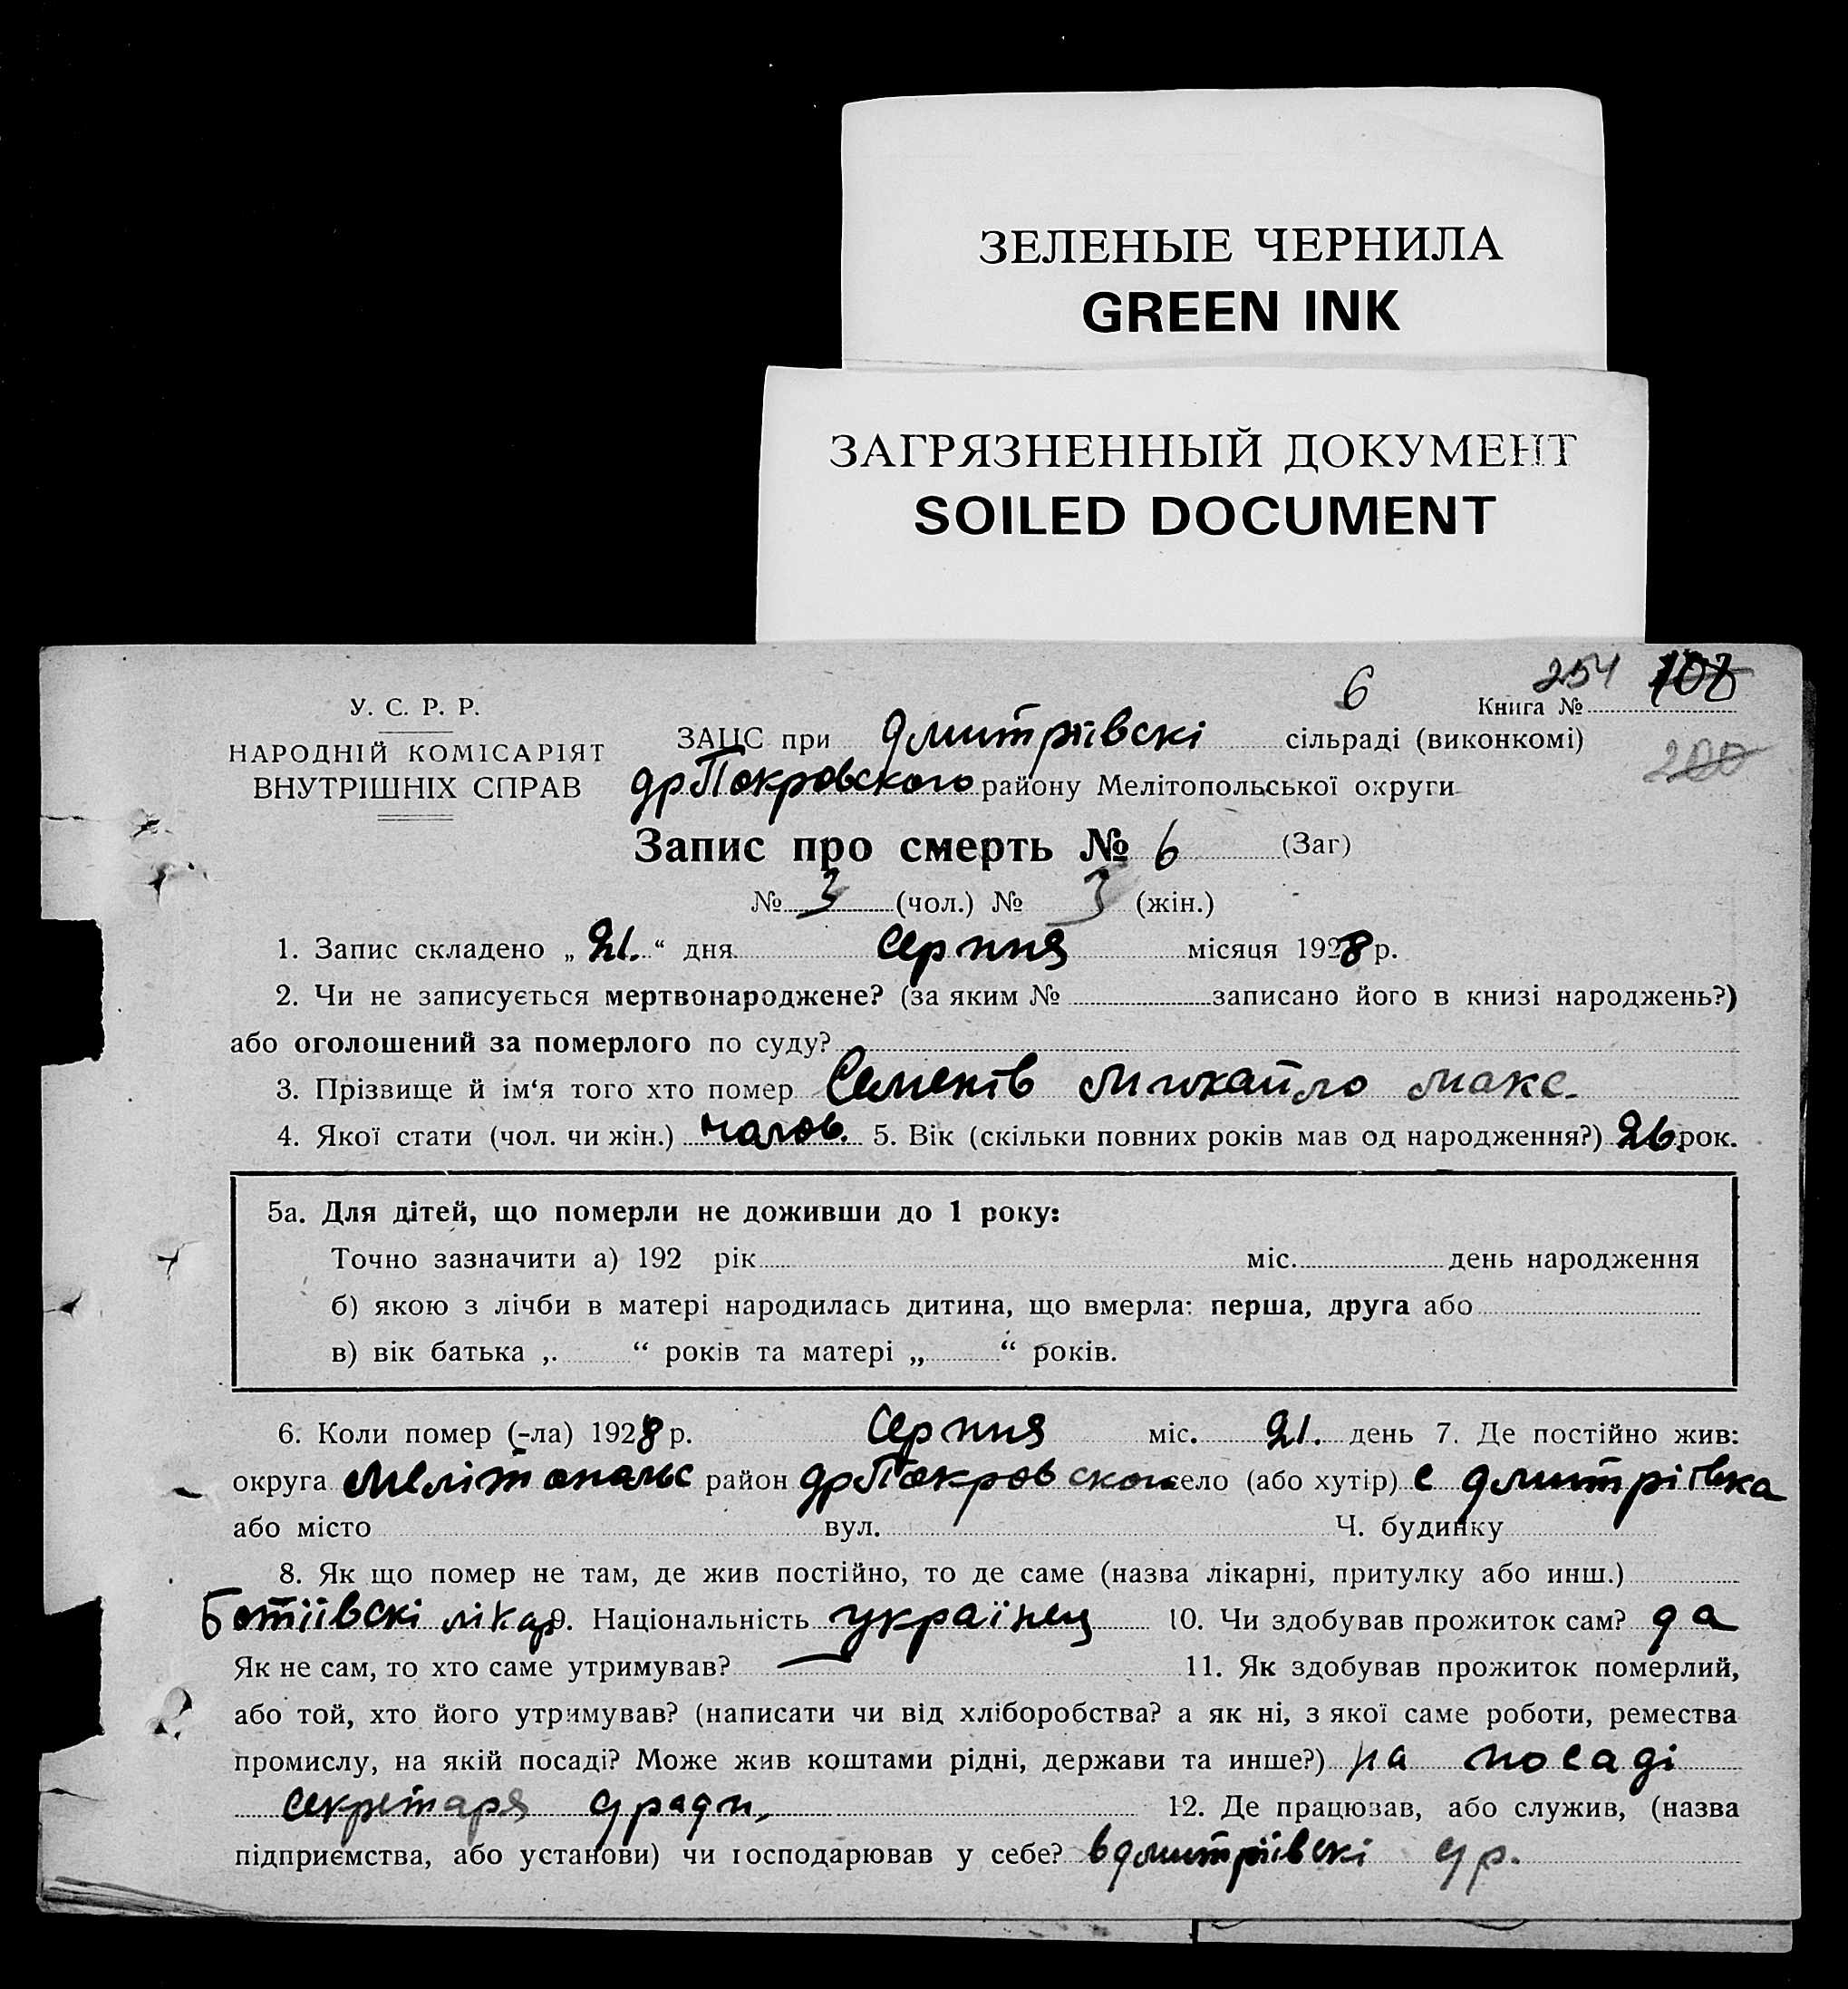 ЗЕЛЕНЫЕ ЧЕРНИЛА
GREEN INK
ЗАГРЯЗНЕННЫЙ ДОКУМЕНТ
SOILED DOCUMENT
254
6
У. С. Р. Р.
Книга №
НАРОДНІЙ КОМІСАРІЯТ
ВНУТРІШНІХ СПРАВ
ЗАЦС при Дмитріївскі сільраді (виконкомі)
200
др Покровского району Мелітопольської округи
Запис про смерть № 6 (Заг)
№ 3 (чол.) № 3 (жін.)
1. Запис складено „ 21. “ дня Серпня місяця 1928 р.
2. Чи не записується мертвонароджене? (за яким № записано його в книзі народжень?)
або оголошений за померлого по суду?
3. Прізвище й ім‘я того хто помер Семенів Михайло Макс.
4. Якої стати (чол. чи жін.) чалов. 5. Вік (скільки повних років мав од народження?) 26 рок.
5а. Для дітей, що померли не доживши до 1 року:
Точно зазначити а) 192 рік міс. день народження
б) якою з лічби в матері народилась дитина, що вмерла: перша, друга або
в) вік батька „ “ років та матері „ “ років.
6. Коли помер (-ла) 1928 р. Серпня міс. 21. день 7. Де постійно жив:
округа Мелітопольс район др Покровског село (або хутір) с Дмитрівка
або місто вул. Ч. будинку
8. Як що помер не там, де жив постійно, то де саме (назва лікарні, притулку або инш.)
Ботіївскі лікар 9. Національність українец 10. Чи здобував прожиток сам? да
Як не сам, то хто саме утримував? — 11. Як здобував прожиток померлий,
або той, хто його утримував? (написати чи від хліборобства? а як ні, з якої саме роботи, ремества
промислу, на якій посаді? Може жив коштами рідні, держави та инше?) на посаді
секретаря с/ради, 12. Де працював, або служив, (назва
підприємства, або установи) чи господарював у себе? в Дмитріївскі с/р.